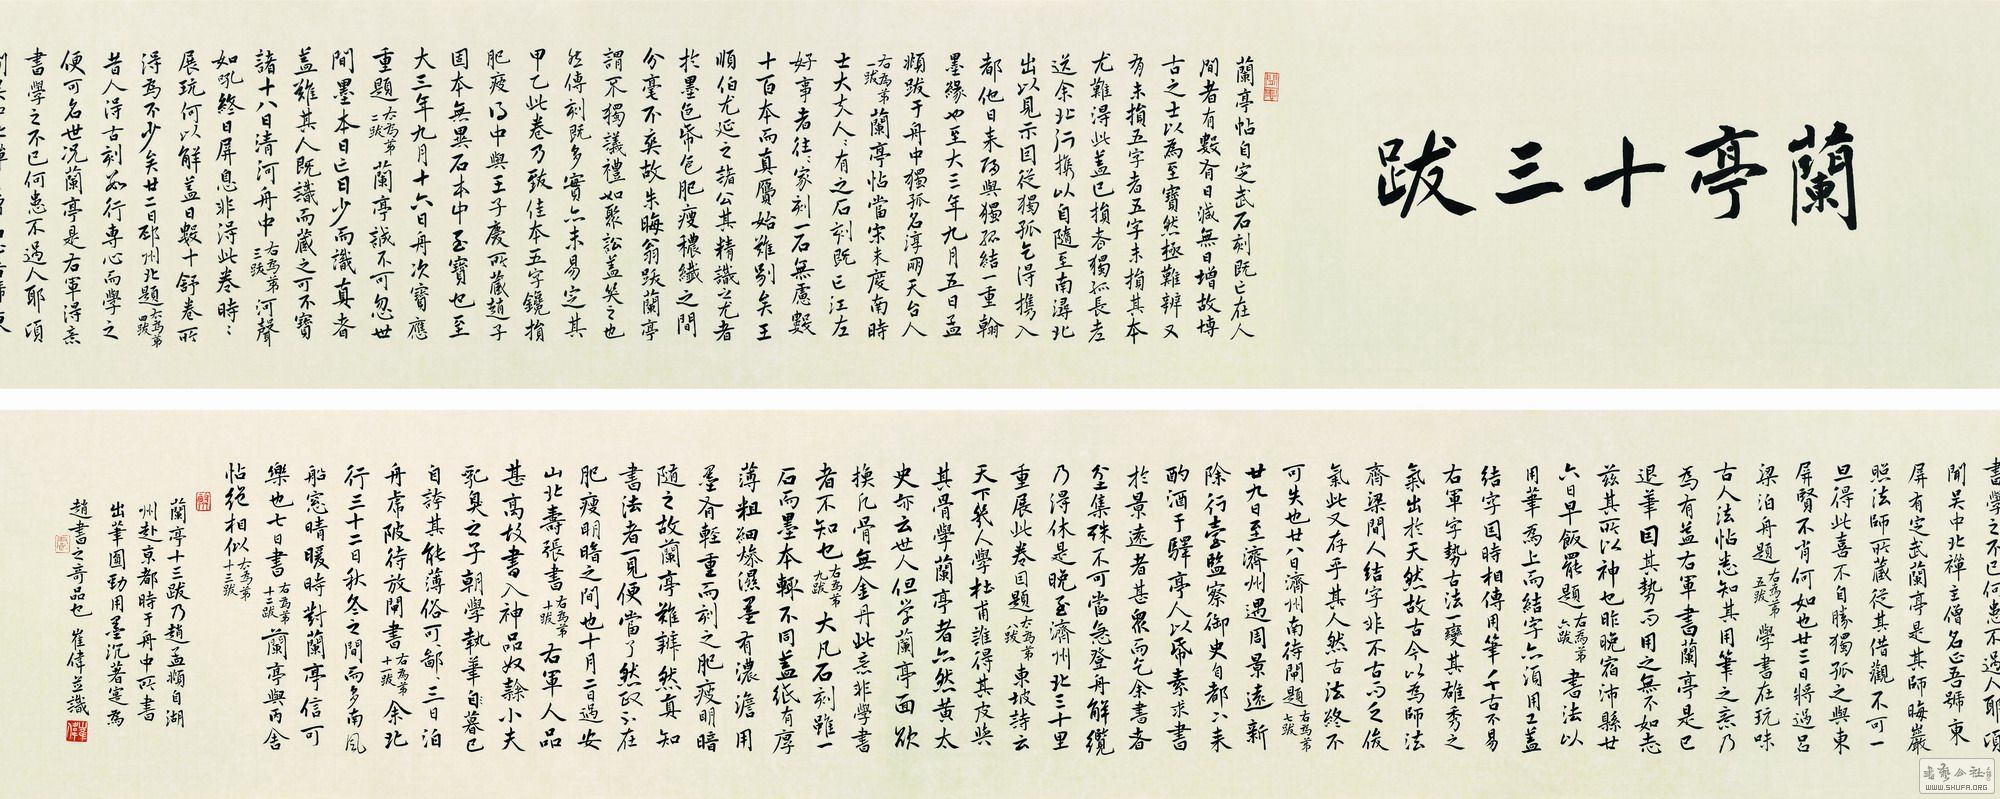 蘭亭十三跋
蘭亭帖自定武石刻既亡在人
間者有數有日減無日增故博
古之士以為至寶然極難辨又
有未損五字者五字未損其本
尤難得此蓋已損者獨孤長老
送余北行攜以自隨至南潯北
出以見示因從獨孤乞得攜入
都他日來歸與獨孤結一重翰
墨緣也至大三年九月五日孟
頫跋于舟中獨孤名淳朋天台人
右為第一跋 蘭亭帖當宋未度南時
士大夫人々有之石刻既亡江左
好事者往々家刻一石無慮數
十百本而真贗始難別矣王
順伯尤延之諸公其精識之尤者
於墨色紙色肥瘦穠纖之間
分毫不爽故朱晦翁跋蘭亭
謂不獨議禮如聚訟蓋笑之也
然傳刻既多實亦未易定其
甲乙此卷乃致佳本五字鑱損
肥瘦得中與王子慶所藏趙子
固本無異石本中至寶也至
大三年九月十六日舟次寶應
重題 右為第二跋 蘭亭誠不可忽世
間墨本日亡日少而識真者
蓋難其人既識而藏之可不寶
諸十八日清河舟中 右為第三跋 河聲
如吼終日屏息非得此卷時々
展玩何以解日蓋日數十舒卷所
得為不少矣廿二日邳州北題 右為第四跋
昔人得古刻數行專心而學之
便可名世況蘭亭是右軍得意
書學之不已何患不過人耶頃
聞吳中北禪主僧名正吾號東
屏有定武蘭亭是其師晦巖
照法師所藏從其借觀不可一
旦得此喜不自勝獨孤之與東
屏賢不肖何如也廿三日將過呂
梁泊舟題 右為第五跋 學書在玩味
古人法帖悉知其用筆之意乃
為有益右軍書蘭亭是已
退筆因其勢而用之無不如志
茲其所以神也昨晚宿沛縣廿
六日早飯罷題 右為第六跋 書法以
用筆為上而結字亦須用工蓋
結字因時相傳用筆千古不易
右軍字勢古法一變其雄秀之
氣出於天然故古今以為師法
齊梁間人結字非不古而乏俊
氣此又存乎其人然古法終不
可失也廿八日濟州南待閘題 右為第七跋
廿九日至濟州遇周景遠新
除行臺監察御史自都下來
酌酒于驛亭人以紙素求書
於景遠者甚眾而乞余書者
坌集殊不可當急登舟解纜
乃得休是晚至濟州北三十里
重展此卷因題 右為第八跋 東坡詩云
天下幾人學杜甫誰得其皮與
其骨學蘭亭者亦然黃太
史亦云世人但學蘭亭面欲
換凡骨無金丹此意非學書
者不知也 右為第九跋 大凡石刻雖一
石而墨本輒不同蓋紙有厚
薄粗細燥濕墨有濃澹用
墨有輕重而刻之肥瘦明暗
隨之故蘭亭難辨然真知
書法者一見便當了然政不在
肥瘦明暗之間也十月二日過安
山北壽張書 右為第十跋 右軍人品
甚高故書入神品奴隸小夫
乳臭之子朝學執筆暮已
自誇其能薄俗可鄙々三日泊
舟虎陂待放閘書 右為第十跋 余北
行三十二日秋冬之間而多南風
船窓晴暖時對蘭亭信可
樂也七日書 右為第十二跋 蘭亭與丙舍
帖絕相似 右為第十三跋
蘭亭十三跋乃趙孟頫自湖
州赴京都時于舟中所書
出筆圓勁用墨沉著寔為
趙書之奇品也 崔偉並識
書藝公社
WWW.SHUFA.ORG